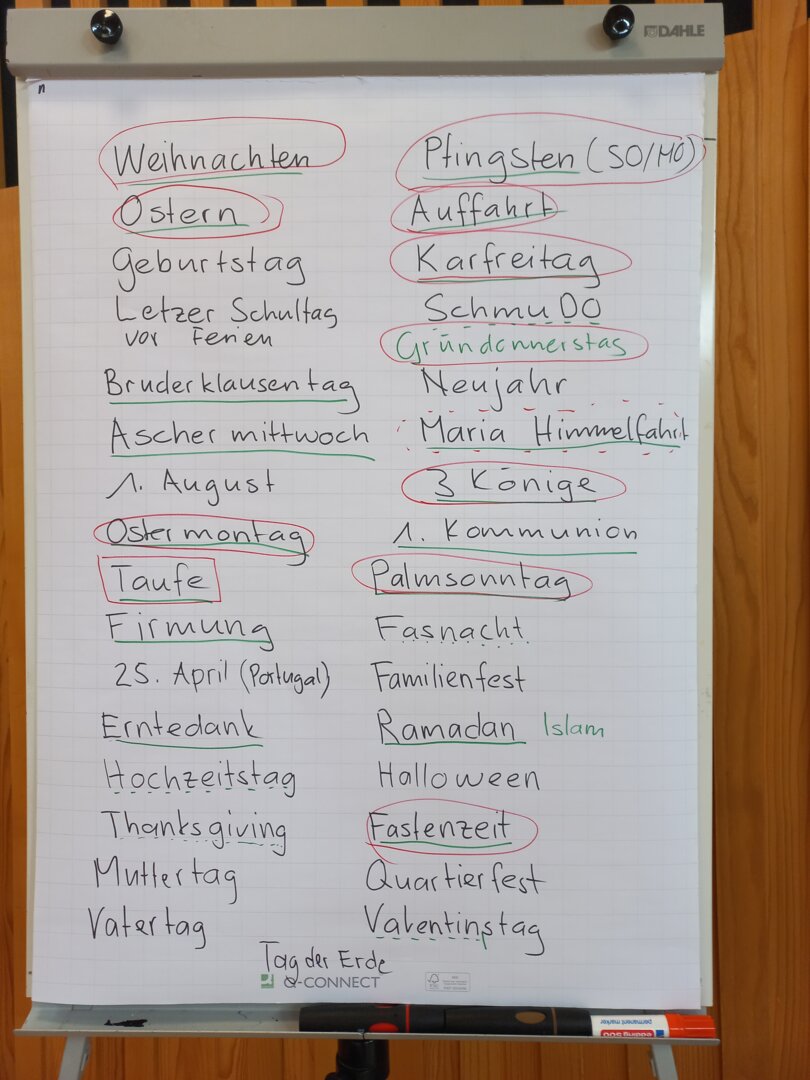 DAHLE
n
Weihnachten
Ostern
Geburtstag
Letzer Schultag
vor Ferien
Bruderklausentag
Aschermittwoch
1. August
Ostermontag
Taufe
Firmung
25. April (Portugal)
Erntedank
Hochzeitstag
Thanksgiving
Muttertag
Vatertag
Pfingsten (SO/MO)
Auffahrt
Karfreitag
SchmuDO
Gründonnerstag
Neujahr
Maria Himmelfahrt
3 Könige
1. Kommunion
Palmsonntag
Fasnacht
Familienfest
Ramadan Islam
Halloween
Fastenzeit
Quartierfest
Valentinstag
Tag der Erde
Q-CONNECT
FSC
edding 500
permanent marker